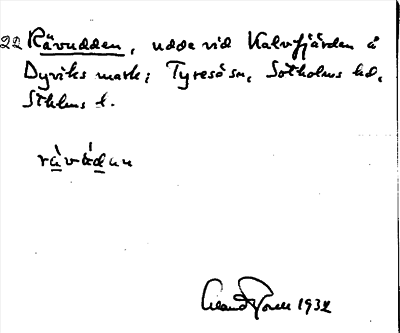 22 Rävudden, udde vid Kalvfjärden å
Dyviks mark; Tyresö sn, Sotholms hd,
Sthlms l.
rä̀vúdan
1932